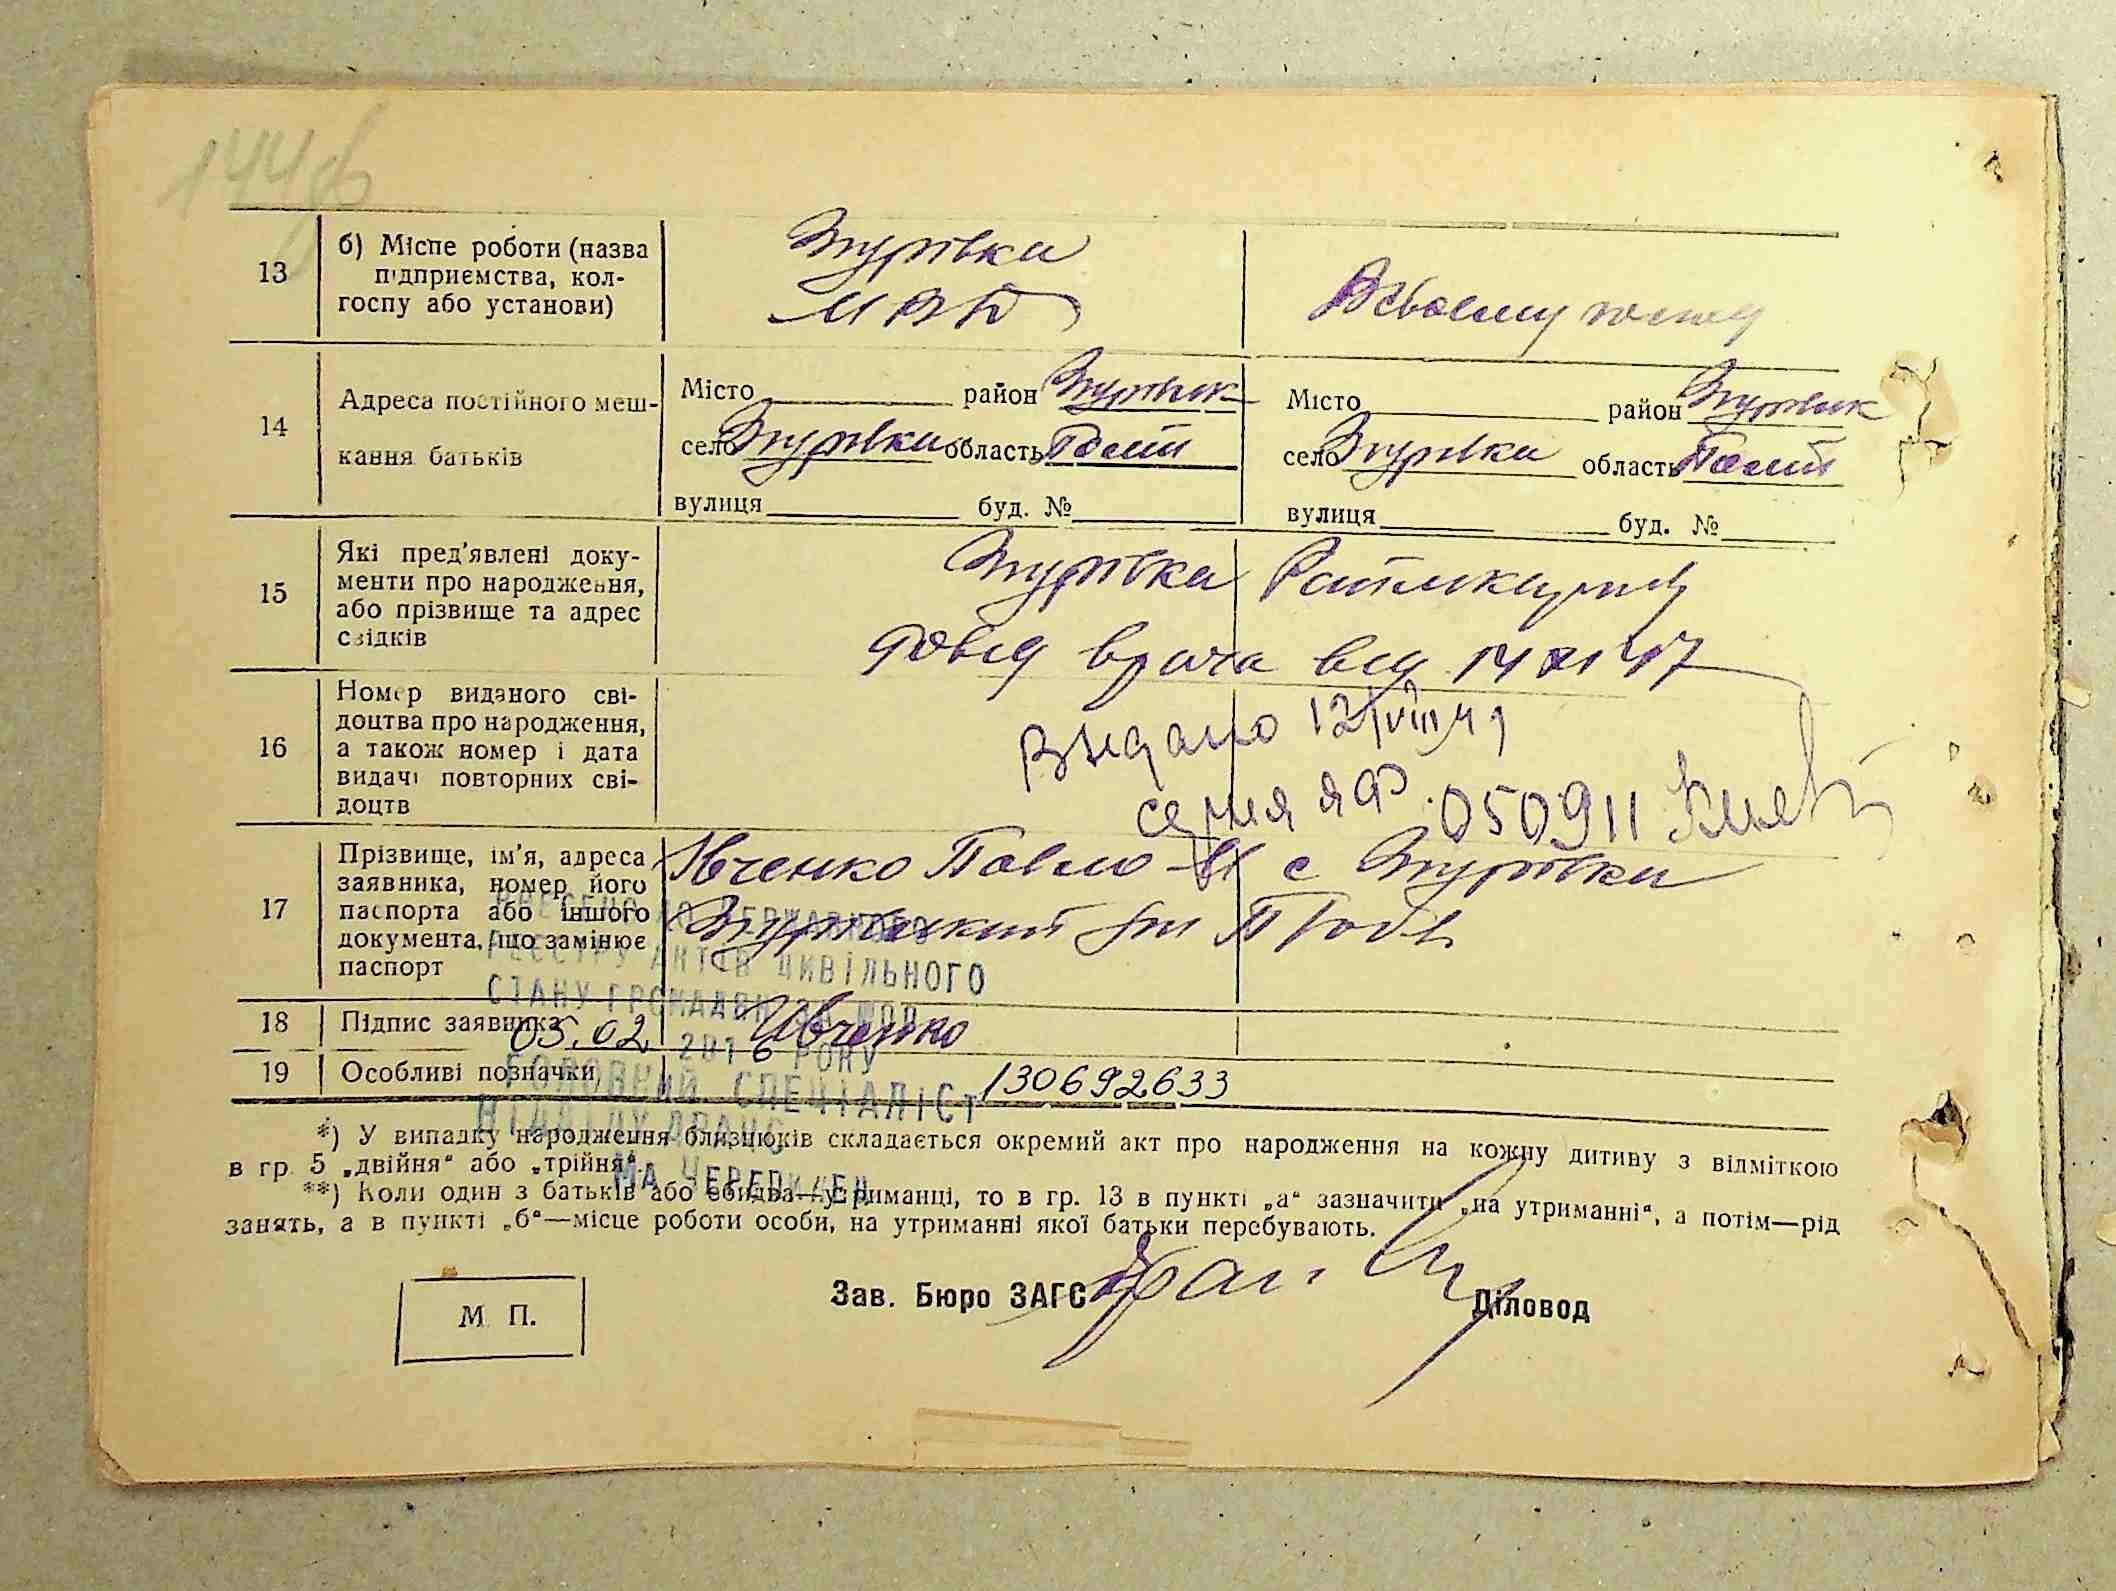 144
13
б) Місце роботи (назва
підприємства, кол-
госпу або установи)
Згурівка
МВД
14
Адреса постійного меш-
кання батьків
Місто район Згурівськ
село Згурівка область Полт
вулиця буд. №
Місто район Згурівськ
село Згурівка область Полт
вулиця буд. №
15
Які пред'явлені доку-
менти про народження,
або прізвище та адрес
свідків
Згурівка Райлікарня
довід врача від 14 XI 47
16
Номер виданого сві-
доцтва про народження,
а також номер і дата
видачі повторних сві-
доцтв
Выдано 12/VIII 49
серия ЯФ 050911
17
Прізвище, ім'я, адреса
заявника, номер його
паспорта або іншого
документа, що замінює
паспорт
Івченко Павло с Згурівка
Згурівський
ВНЕСЕНО ДО ДЕРЖАВНОГО
РЕЄСТРУ АКТІВ ЦИВІЛЬНОГО
СТАНУ ГРОМАДЯН
18
Підпис заявника
Ивченко
05.02 2016 РОКУ
19
Особливі позначки
130692633
ГОЛОВНИЙ СПЕЦІАЛІСТ
ВІДДІЛУ ДРАЦС
*) У випадку народження близнюків складається окремий акт про народження на кожну дитину з відміткою
в гр. 5 „двійня“ або „трійня“.
**) Коли один з батьків або обидва—утриманці, то в гр. 13 в пункті „а“ зазначити „на утриманні“, а потім—рід
занять, а в пункті „б“—місце роботи особи, на утриманні якої батьки перебувають.
М. П.
Зав. Бюро ЗАГС
Діловод